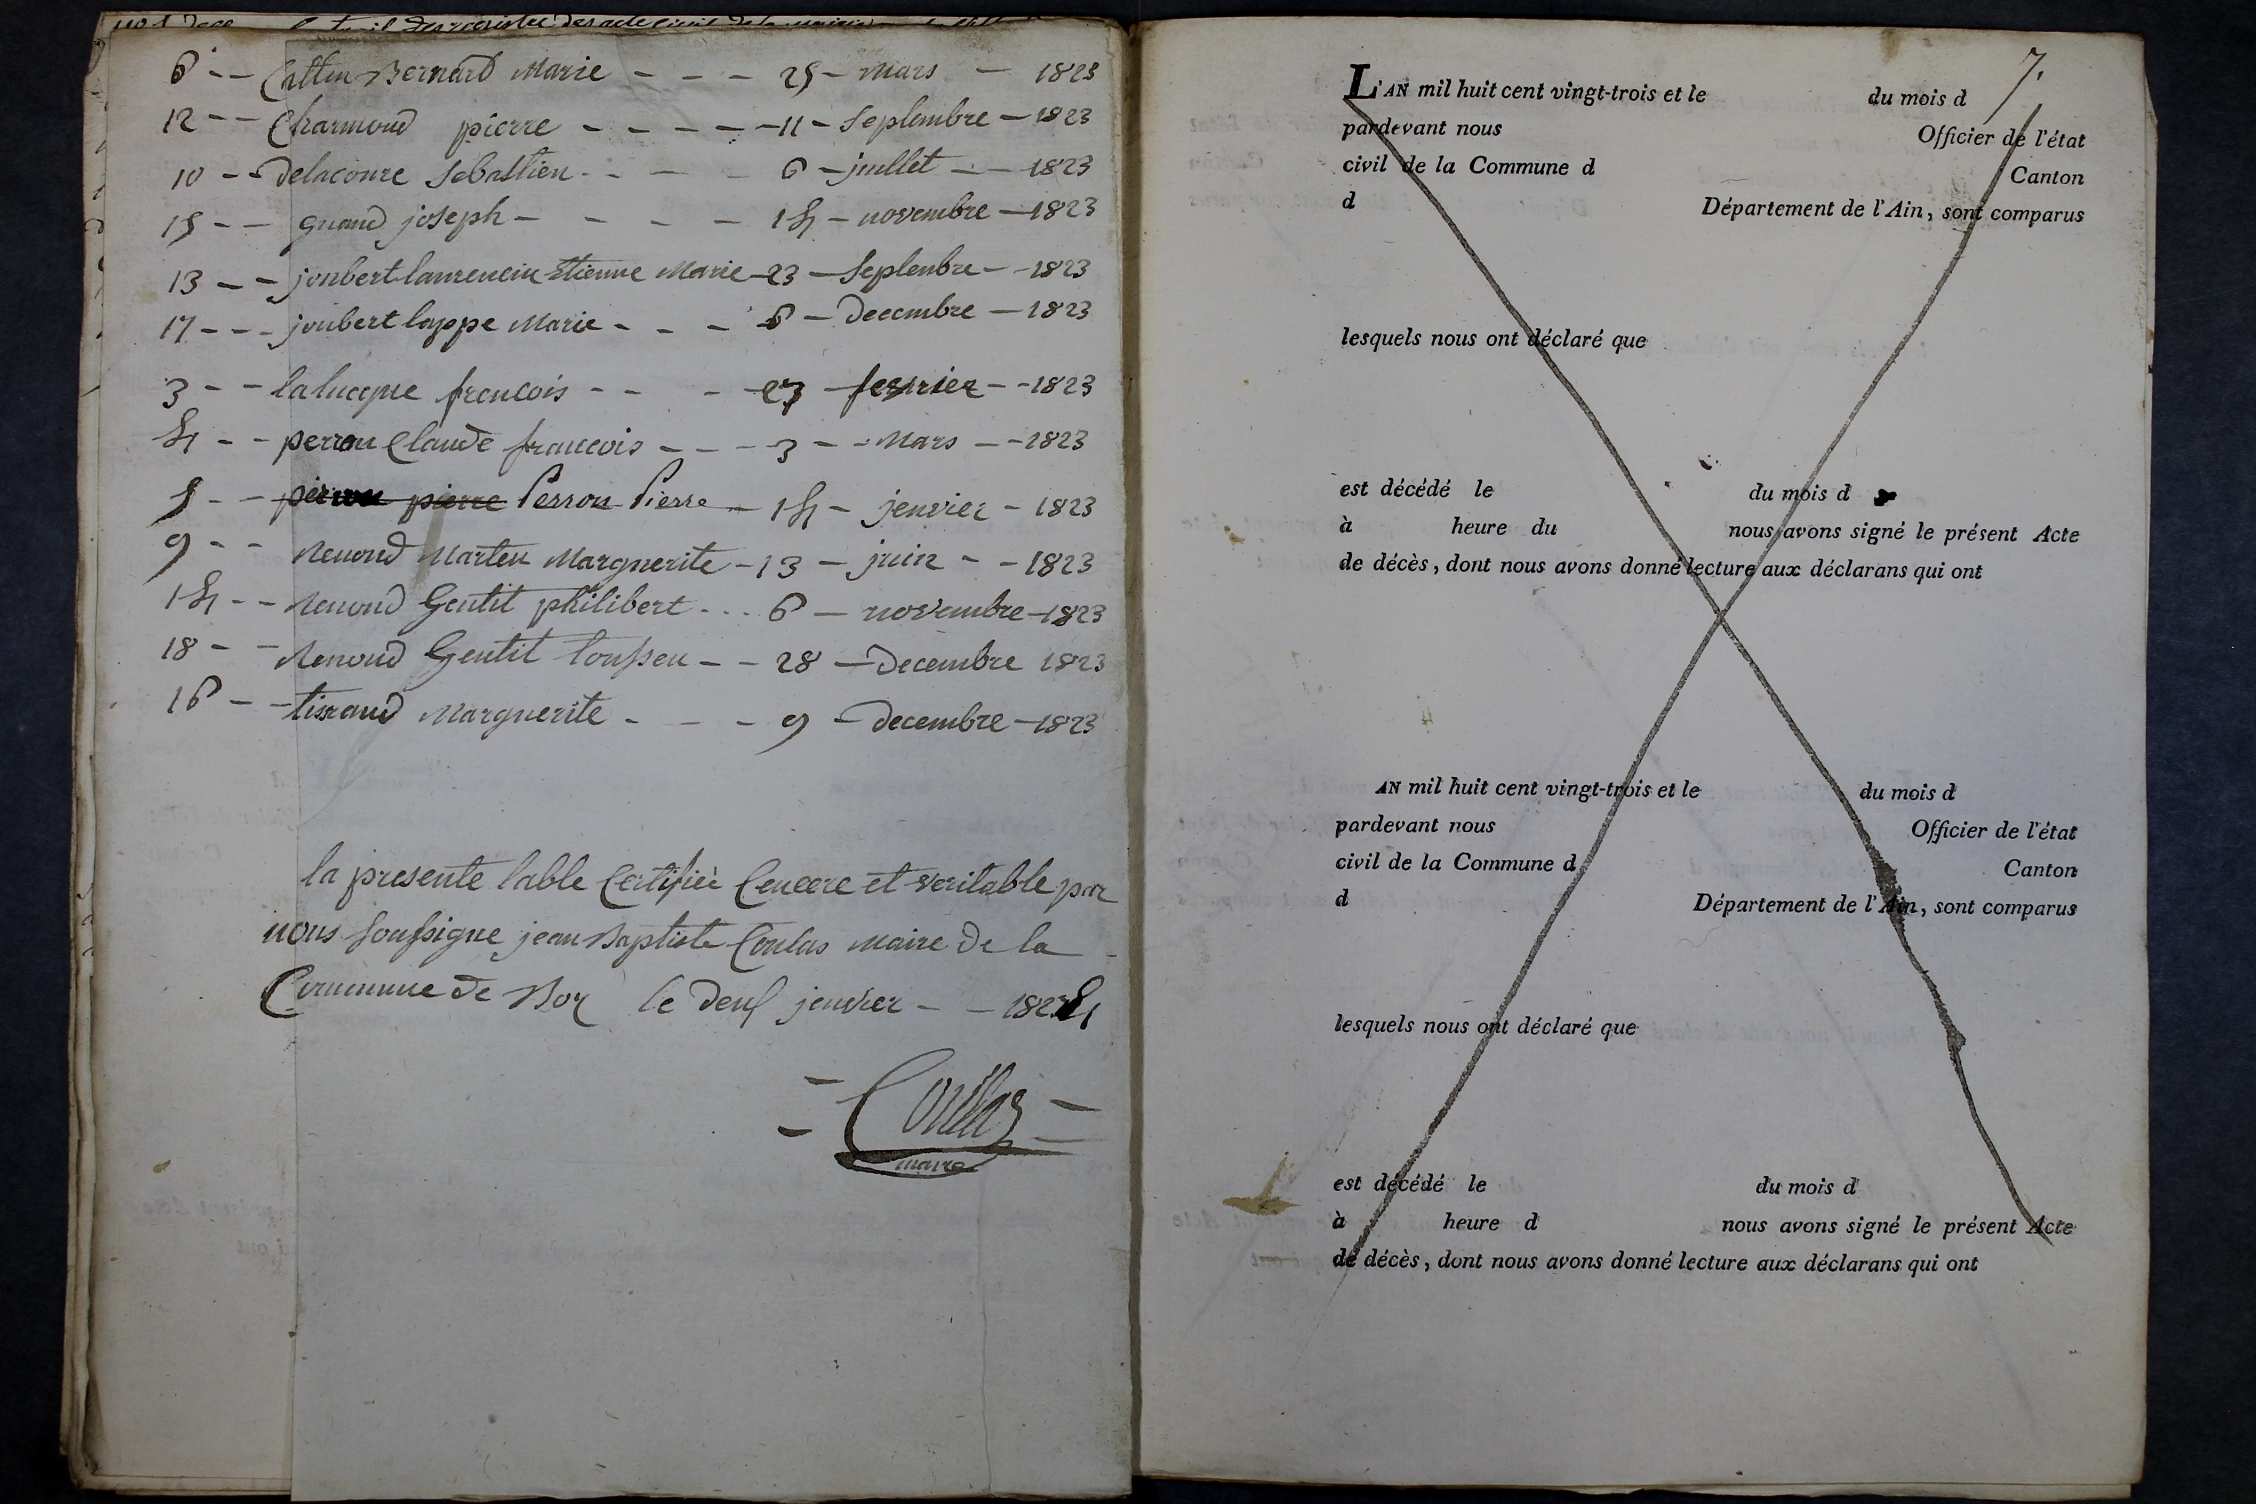 6 - - Cattin Bernard Marie - - - 25 - Mars - 1823
12 - - Charmond pierre - - - - - 11 - Septembre - 1823
10 - - delacoure Sebastien - - - - 6 - juillet - - 1823
15 - - guand joseph - - - - - 14 - novembre - 1823
13 - - joubert laurencin Etienne Marie - 23 - Septenbre - - 1823
17 - - - joubert lappe Marie - - - 6 - Decembre - 1823
3 - - lalucque frencois - - - 27 - fevrier - - 1823
4 - - perron Claude francois - - - 3 - - Mars - - 1823
1 - - perron pierre Perron Pierre - 14 - jenvier - 1823
9 - - Renoud Marten Marguerite - 13 - juin - - 1823
14 - - Renoud Gentit philibert - - - 6 - novembre - 1823
18 - - Renoud Gentit - - 28 - Decembre 1823
16 - - tissraud Marguerite - - - 9 - decembre - 1823
la presente table Certifiée Cencere et veritable par
nous soussigne jean Baptiste Coulas maire de la
Commune de Boz le deux jenvier - - 1824
= Coullas =
maire
7.
L'AN mil huit cent vingt-trois et le du mois d
pardevant nous Officier de l'état
civil de la Commune d Canton
d Département de l'Ain, sont comparus
lesquels nous ont déclaré que
est décédé le du mois d
à heure du nous avons signé le présent Acte
de décès, dont nous avons donné lecture aux déclarans qui ont
AN mil huit cent vingt-trois et le du mois d
pardevant nous Officier de l'état
civil de la Commune d Canton
d Département de l'Ain, sont comparus
lesquels nous ont déclaré que
est décédé le du mois d
à heure d nous avons signé le présent Acte
de décès, dont nous avons donné lecture aux déclarans qui ont